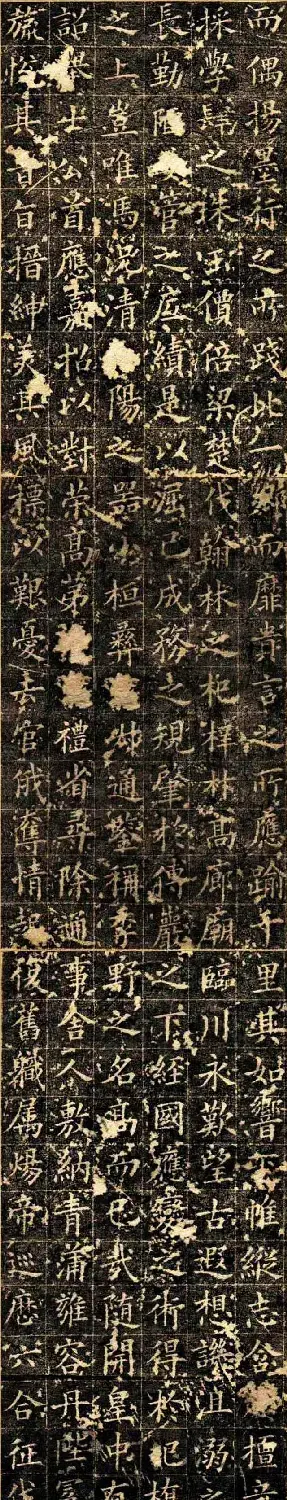 而偶揚墨行之所踐比一鄉而靡貴言之所應踰千里其如響惟縱志含擅
採學歸之採寶價倍梁楚伐翰林之杞梓林高廊廟臨川永歎望古遐想譏沮溺之
長勤陋管之庇績是以濡己成務之規肇於傅巖之下經國應變之術得於圯
之上豈唯馬況清陽之器小桓彝妙通鑒稱季野之名高而已哉隨開皇中有
詔舉士公首應嘉招以對策高第禮省尋除通事舍人敷納青蒲雍容丹陛
旒悅其音旨搢紳美其風標以艱憂去官俄奪情起復舊職屬煬帝巡歷六合征伐